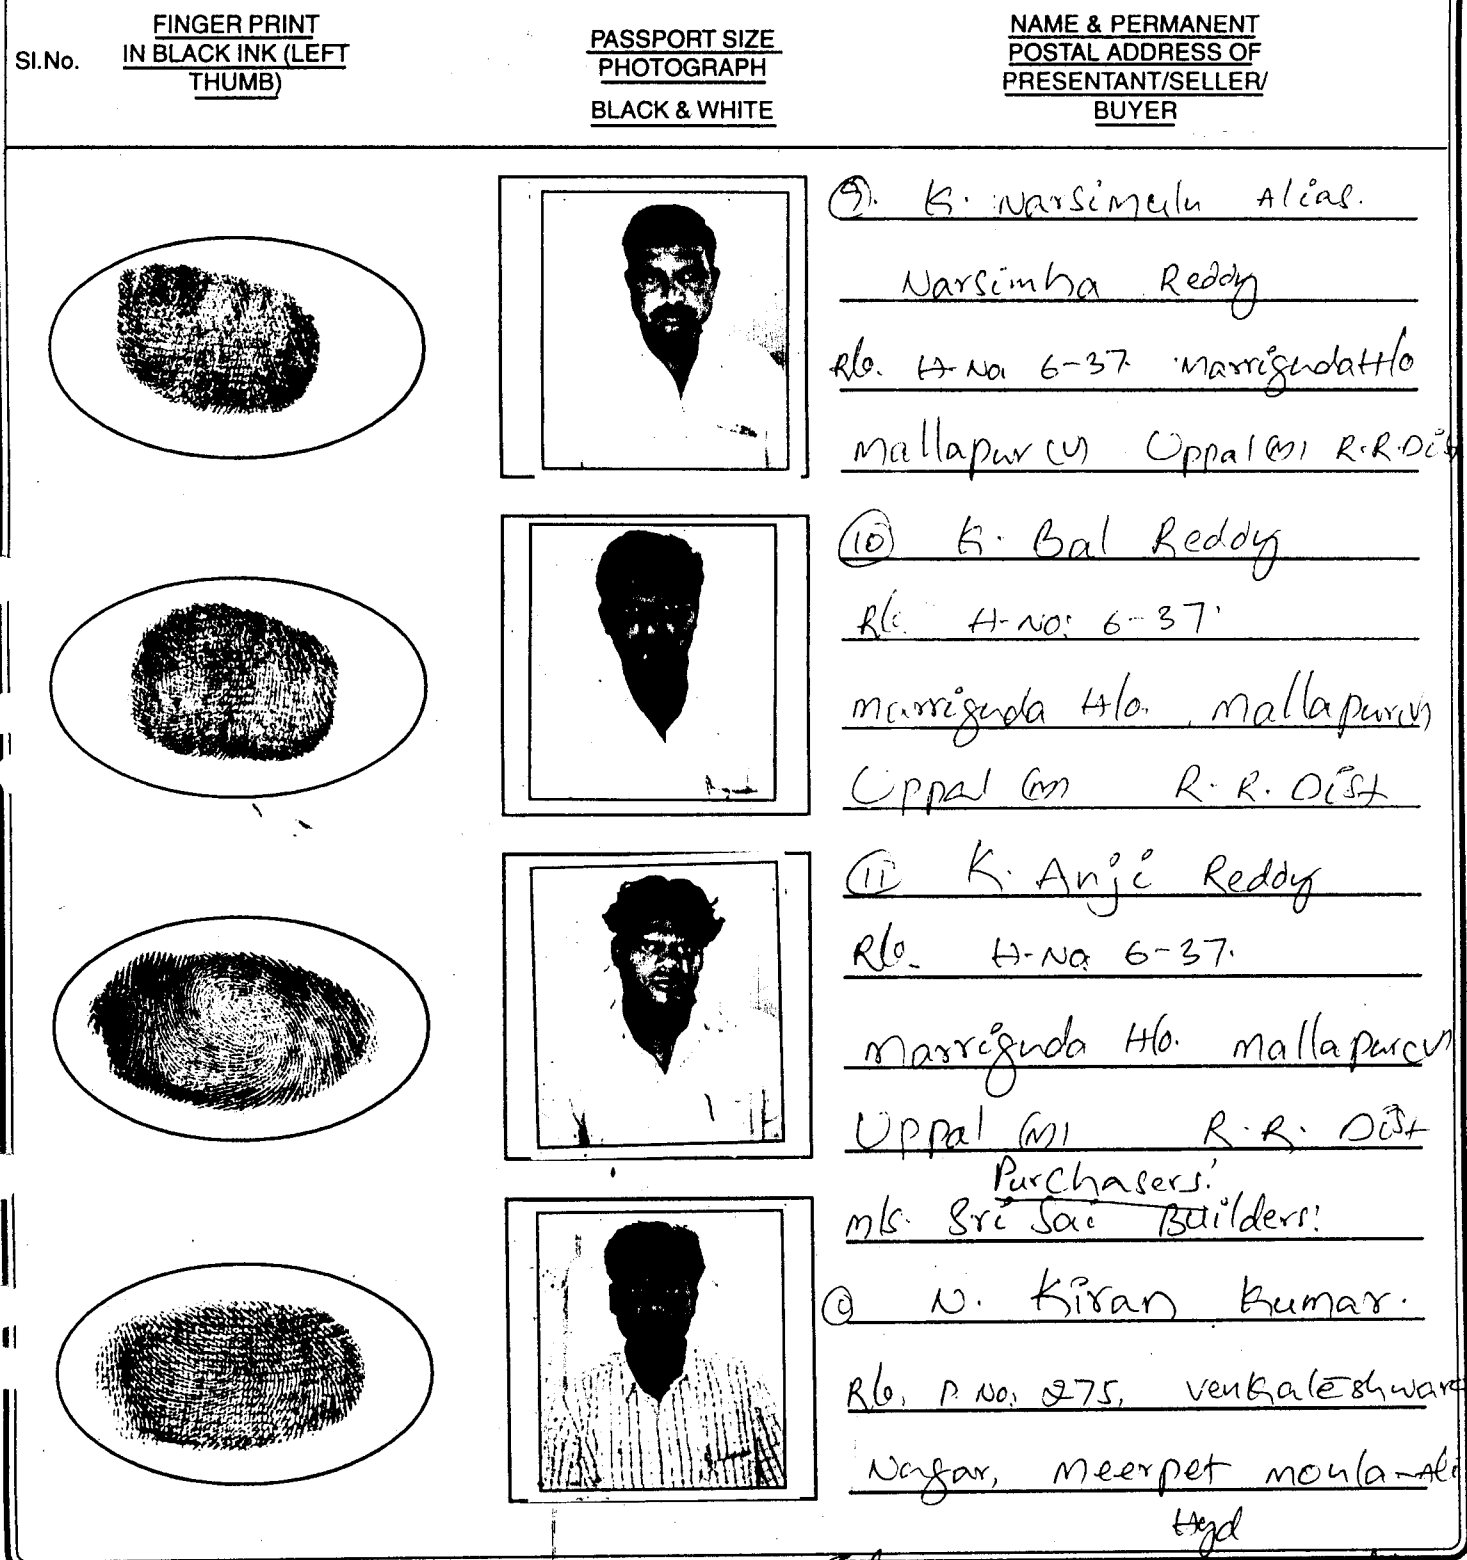 Sl.No.
FINGER PRINT
IN BLACK INK (LEFT
THUMB)
PASSPORT SIZE
PHOTOGRAPH
BLACK & WHITE
NAME & PERMANENT
POSTAL ADDRESS OF
PRESENTANT/SELLER/
BUYER
9. K. Narsimulu Alias.
Narsimha Reddy
R/o. H-No. 6-37. Marriguda H/o
Mallapur (V) Uppal (M) R.R.Dist
10 K. Bal Reddy
R/o. H-No: 6-37.
Marriguda H/o. Mallapur (V)
Uppal (M) R.R. Dist
11 K. Anji Reddy
R/o. H-No 6-37.
Marriguda H/o. Mallapur (V)
Uppal (M) R.R. Dist
Purchasers:
M/s. Sri Sai Builders:
N. Kiran Kumar.
R/o. P. No: 275, Venkateshwara
Nagar, Meerpet Moula-Ali
Hyd